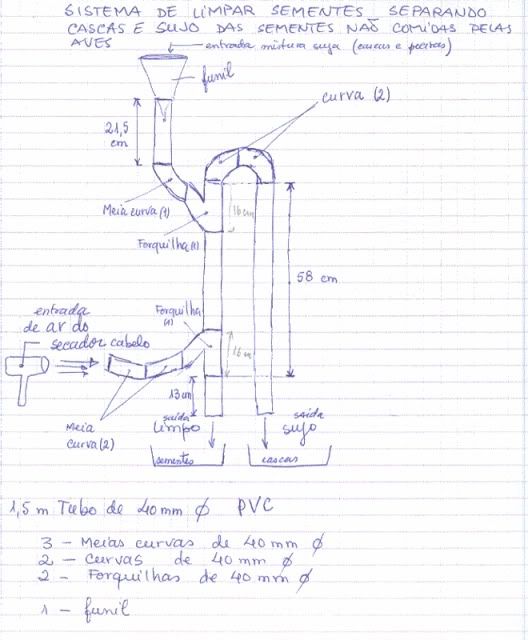 SISTEMA DE LIMPAR SEMENTES SEPARANDO
CASCAS E SUJO DAS SEMENTES NÃO COMIDAS PELAS
AVES
entrada mistura suja (cascas e poeiras)
funil
curva (2)
21,5
cm
Meia curva (1)
16 cm
Forquilha (1)
58 cm
Forquilha
(1)
entrada
de ar do
secador cabelo
16 cm
13 cm
Meia
curva (2)
saída
limpo
saída
sujo
sementes
cascas
1,5 m Tubo de 40 mm ϕ PVC
3 - Meias curvas de 40 mm ϕ
2 - Curvas de 40 mm ϕ
2 - Forquilhas de 40 mm ϕ
1 - funil